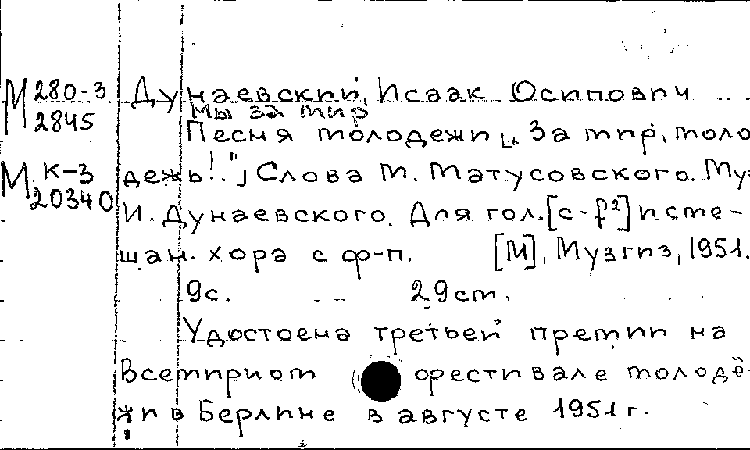 М 280-3
2845
Дунаевский, Исаак Осипович
Мы за мир
Песня молодежи „За мир, моло
М К-3
20340
дежь!.." Слова М. Матусовского. Му
И. Дунаевского. Для гол. [c-f²] и сме-
шан. хора с ф-п. [М], Музгиз, 1951.
9с. 29см.
Удостоена третьей премии на
Всемирном фестивале молодё-
жи в Берлине в августе 1951 г.